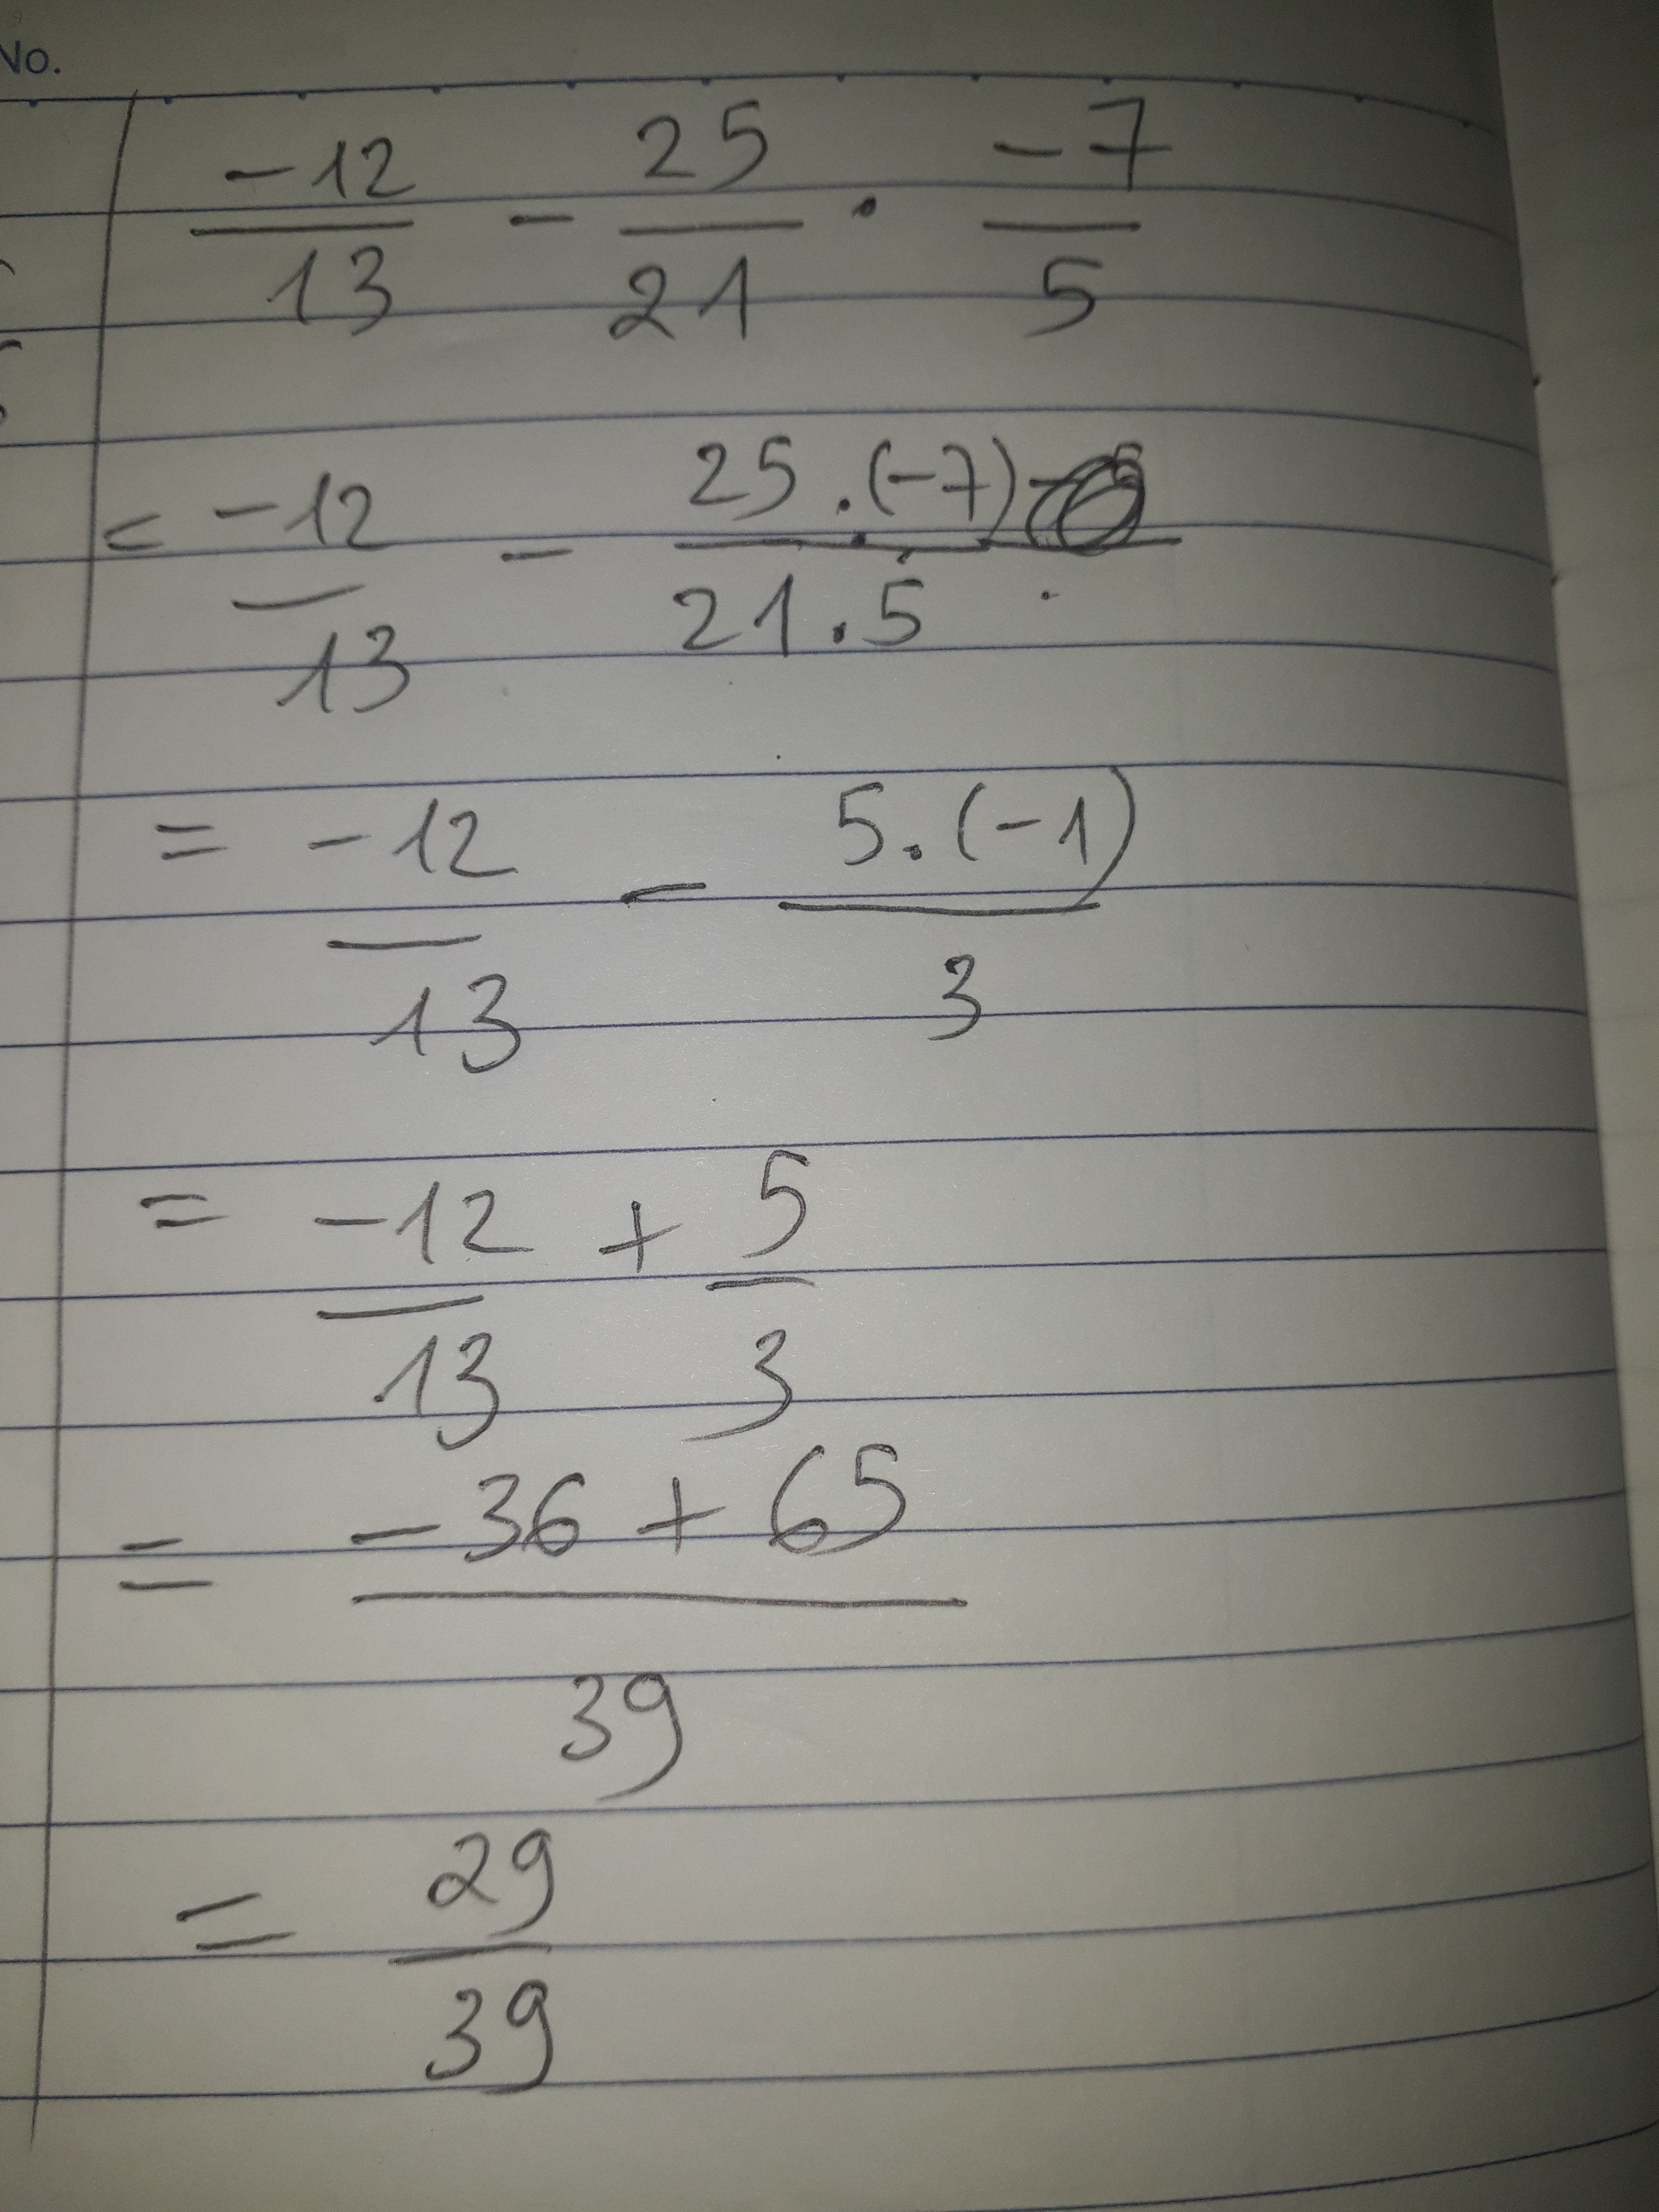 No.
-12/13 - 25/21 . -7/5
= -12/13 - 25.(-7)/21.5
= -12/13 - 5.(-1)/3
= -12/13 + 5/3
= -36 + 65/39
= 29/39